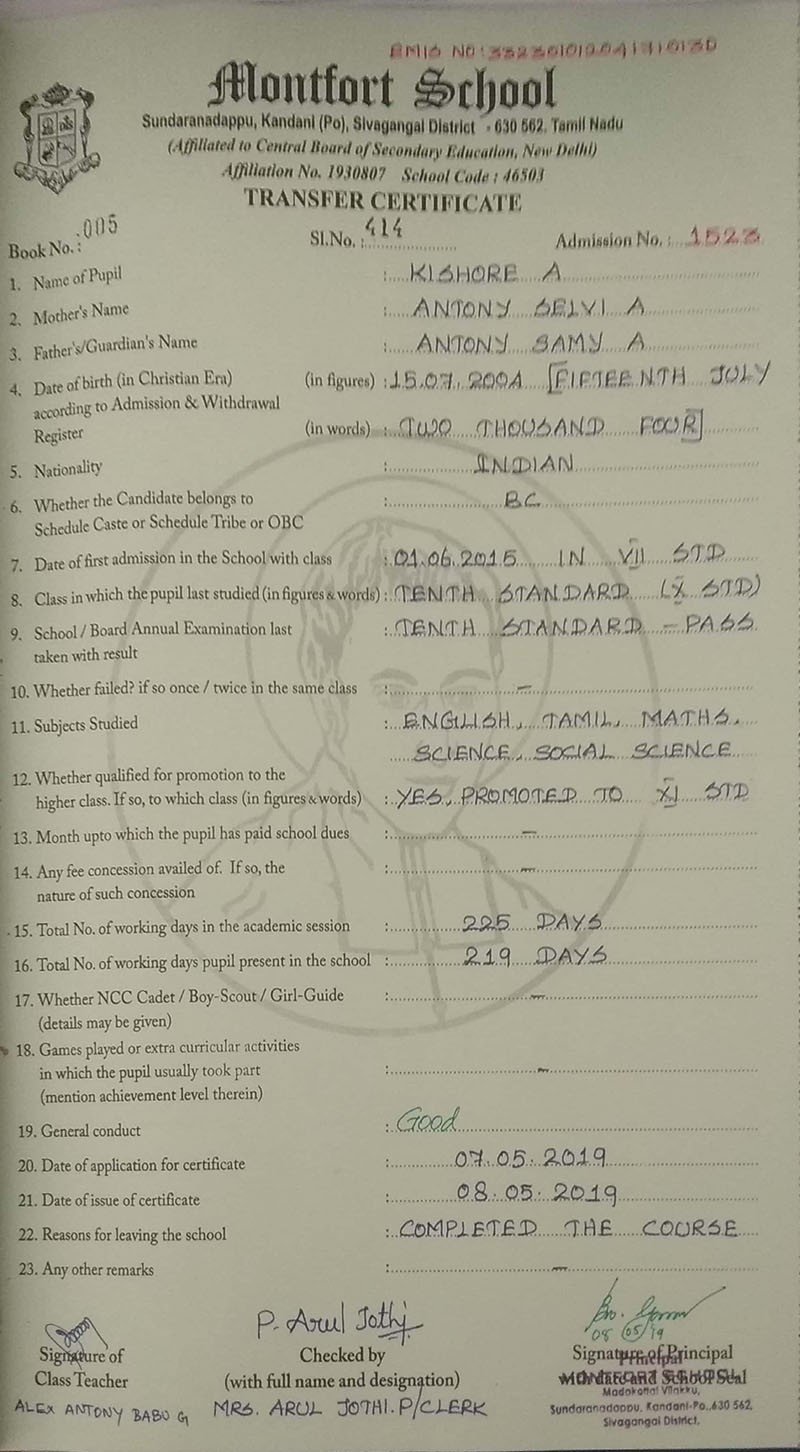 Montfort School
Sundaranadappu, Kandani (Po), Sivagangai District - 630 562. Tamil Nadu
(Affiliated to Central Board of Secondary Education, New Delhi)
Affiliation No. 1930807 School Code : 46503
TRANSFER CERTIFICATE
Book No. : 005 Sl.No. : 414 Admission No. : 1523
1. Name of Pupil : KISHORE A
2. Mother's Name : ANTONY SELVI A
3. Father's/Guardian's Name : ANTONY SAMY A
4. Date of birth (in Christian Era) (in figures) : 15.07.2004 [FIFTEENTH JULY
according to Admission & Withdrawal
Register (in words) : TWO THOUSAND FOUR]
5. Nationality : INDIAN
6. Whether the Candidate belongs to : BC
Schedule Caste or Schedule Tribe or OBC
7. Date of first admission in the School with class : 01.06.2015 IN VII STD
8. Class in which the pupil last studied (in figures & words) : TENTH STANDARD (X STD)
9. School / Board Annual Examination last : TENTH STANDARD - PASS
taken with result
10. Whether failed? if so once / twice in the same class : —
11. Subjects Studied : ENGLISH, TAMIL, MATHS,
SCIENCE, SOCIAL SCIENCE
12. Whether qualified for promotion to the
higher class. If so, to which class (in figures & words) : YES, PROMOTED TO XI STD
13. Month upto which the pupil has paid school dues : —
14. Any fee concession availed of. If so, the : —
nature of such concession
15. Total No. of working days in the academic session : 225 DAYS
16. Total No. of working days pupil present in the school : 219 DAYS
17. Whether NCC Cadet / Boy-Scout / Girl-Guide : —
(details may be given)
18. Games played or extra curricular activities
in which the pupil usually took part : —
(mention achievement level therein)
19. General conduct : Good
20. Date of application for certificate : 07.05.2019
21. Date of issue of certificate : 08.05.2019
22. Reasons for leaving the school : COMPLETED THE COURSE
23. Any other remarks : —
P. Arul Jothi
08/05/19
Signature of Checked by Signature of Principal
Principal
Class Teacher (with full name and designation) with date and School Seal
MONTFORT SCHOOL
ALEX ANTONY BABU G MRS. ARUL JOTHI. P/CLERK
Madakottai Vilakku,
Sundaranadappu, Kandani-Po., 630 562,
Sivagangai District.